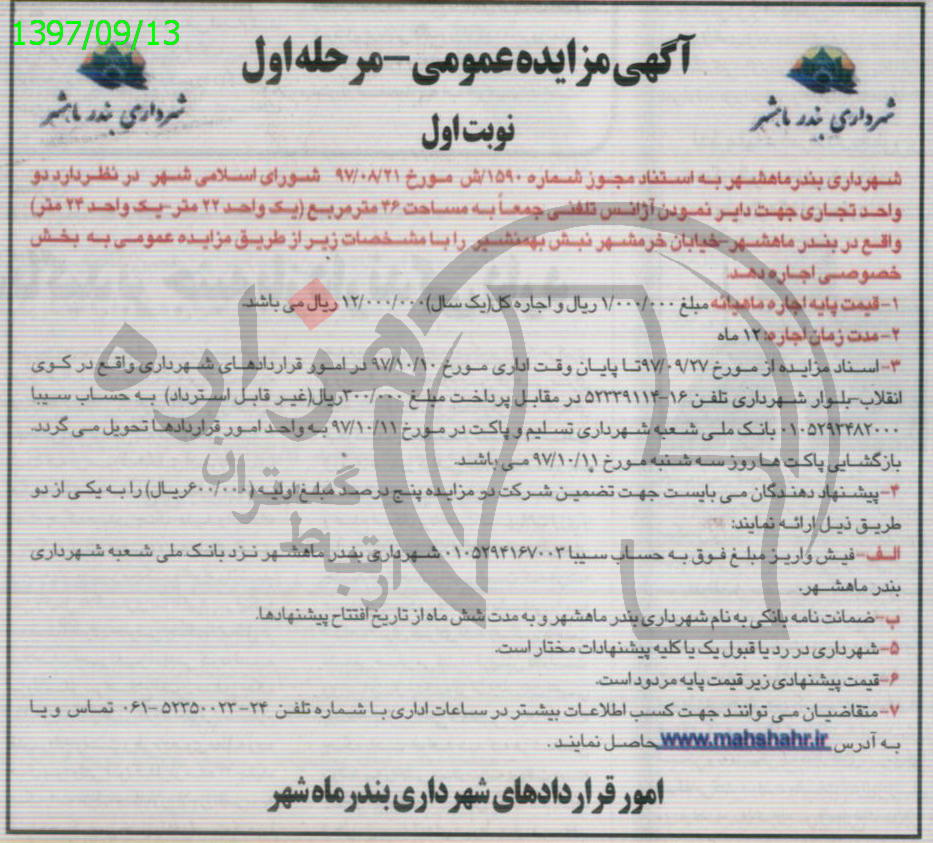 1397/09/13
آگهی مزایده عمومی - مرحله اول
شهرداری بندر ماهشهر
شهرداری بندر ماهشهر
نوبت اول
شهرداری بندرماهشهر به استناد مجوز شماره ۱۵۹۰/ش مورخ ۹۷/۰۸/۲۱ شورای اسلامی شهر در نظر دارد دو
واحد تجاری جهت دایر نمودن آژانس تلفنی جمعاً به مساحت ۴۶ مترمربع (یک واحد ۲۲ متر-یک واحد ۲۴ متر)
واقع در بندر ماهشهر-خیابان خرمشهر نبش بهمنشیر را با مشخصات زیر از طریق مزایده عمومی به بخش
خصوصی اجاره دهد:
۱-قیمت پایه اجاره ماهیانه مبلغ ۱/۰۰۰/۰۰۰ ریال و اجاره کل(یک سال)۱۲/۰۰۰/۰۰۰ ریال می باشد.
۲-مدت زمان اجاره: ۱۲ ماه
۳-اسناد مزایده از مورخ ۹۷/۰۹/۲۷تا پایان وقت اداری مورخ ۹۷/۱۰/۱۰ در امور قراردادهای شهرداری واقع در کوی
انقلاب-بلوار شهرداری تلفن ۱۶-۵۲۳۳۹۱۱۴ در مقابل پرداخت مبلغ ۳۰۰/۰۰۰ریال(غیر قابل استرداد) به حساب سیبا
۰۱۰۵۲۹۳۴۸۲۰۰۰ بانک ملی شعبه شهرداری تسلیم و پاکت در مورخ ۹۷/۱۰/۱۱ به واحد امور قراردادها تحویل می گردد.
بازگشایی پاکت ها روز سه شنبه مورخ ۹۷/۱۰/۱۱ می باشد.
۴-پیشنهاد دهندگان می بایست جهت تضمین شرکت در مزایده پنج درصد مبلغ اولیه (۶۰۰/۰۰۰ریال) را به یکی از دو
طریق ذیل ارائه نمایند:
الف-فیش واریز مبلغ فوق به حساب سیبا ۰۱۰۵۲۹۴۱۶۷۰۰۳ شهرداری بندر ماهشهر نزد بانک ملی شعبه شهرداری
بندر ماهشهر.
ب-ضمانت نامه بانکی به نام شهرداری بندر ماهشهر و به مدت شش ماه از تاریخ افتتاح پیشنهادها.
۵-شهرداری در رد یا قبول یک یا کلیه پیشنهادات مختار است.
۶-قیمت پیشنهادی زیر قیمت پایه مردود است.
۷-متقاضیان می توانند جهت کسب اطلاعات بیشتر در ساعات اداری با شماره تلفن ۲۴-۵۲۳۵۰۰۲۳-۰۶۱ تماس و یا
به آدرس www.mahshahr.ir حاصل نمایند.
امور قراردادهای شهرداری بندر ماه شهر
هزاره